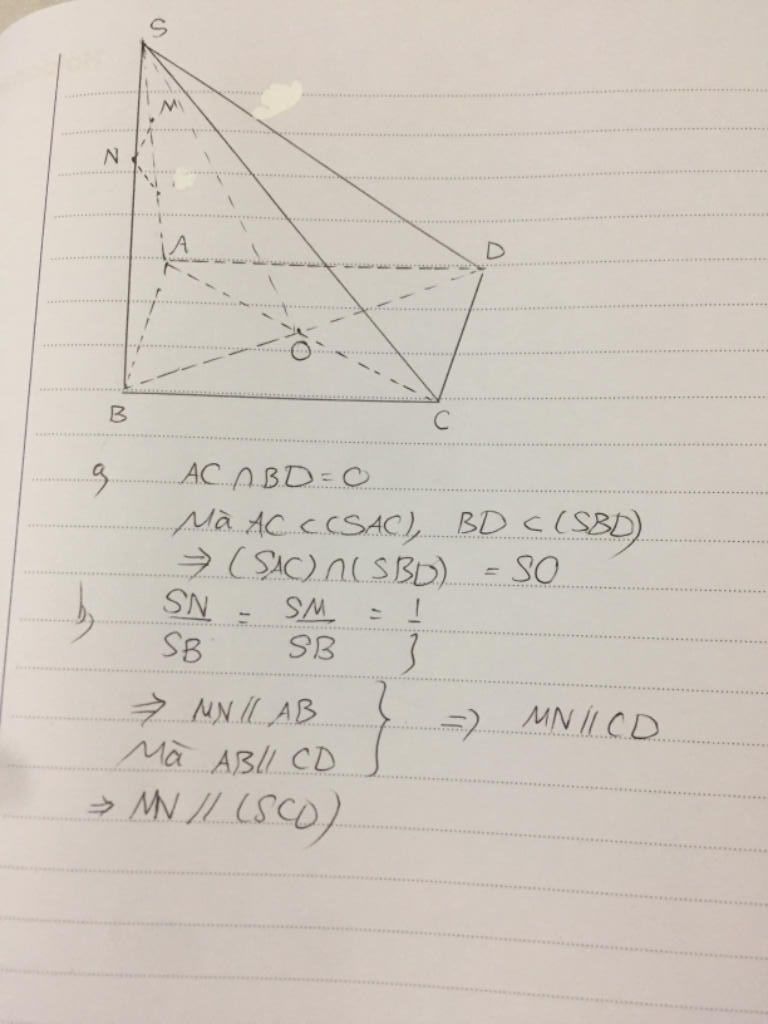 S
M
N
A
D
O
B
C
a, AC ∩ BD = O
Mà AC ⊂ (SAC), BD ⊂ (SBD)
⇒ (SAC) ∩ (SBD) = SO
b, SN/SB = SM/SB = 1/3
⇒ MN // AB
Mà AB // CD } ⇒ MN // CD
⇒ MN // (SCD)